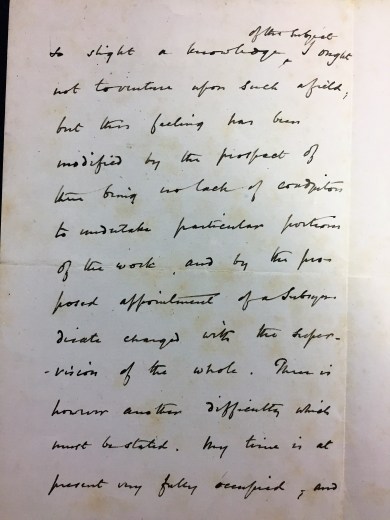 of the subject
so slight a knowledge, I ought
not to venture upon such a field;
but this feeling has been
modified by the prospect of
there being no lack of
to undertake particular portions
of the work, and by the pro-
posed appointment of a Subsyn-
dicate charged with the super-
-vision of the whole. There is
however another difficulty which
must be stated. My time is at
present very fully occupied, and